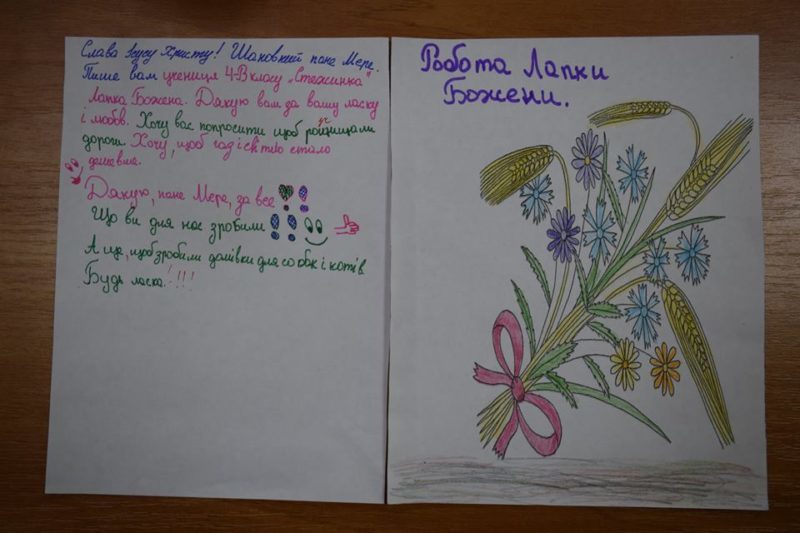 Слава Ісусу Христу! Шановний пане Мере.
Пише вам учениця 4-В класу „Стежинка"
Лапка Божена. Дякую вам за вашу ласку
і любов. Хочу вас попросити щоб
дороги. Хочу, щоб газ і світло стало
дешевше.
Дякую, пане Мере, за все
Що ви для нас зробили
А ще, щоб зробили домівки для собак і котів
Будь ласка!!!!
Робота Лапки
Божени.